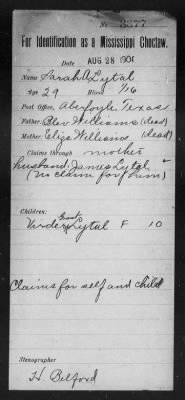 No.
For Identification as a Mississippi Choctaw.
Date AUG 28 1901
Name Sarah A Lytal
Age 29 Blood 1/16
Post Office, Aberfoyle, Texas
Father, Blev Williams (dead)
Mother, Eliza Williams (dead)
Claims through mother
husband: James Lytal
(no claim for him)
Children:
Lytal F 10
Claims for self and child
Stenographer
H Belford